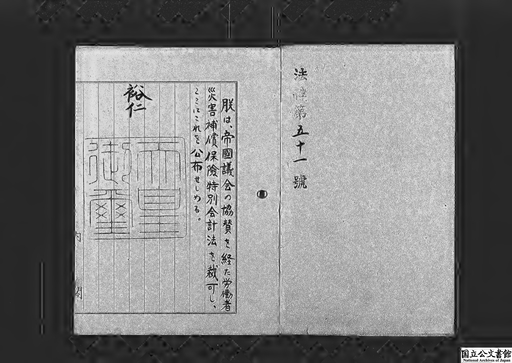 法律第五十一號
朕は、帝國議会の協賛を経た労働者
災害補償保險特別会計法を裁可し、
ここにこれを公布せしめる。
裕仁
天皇
御璽
内閣
国立公文書館
National Archives of Japan